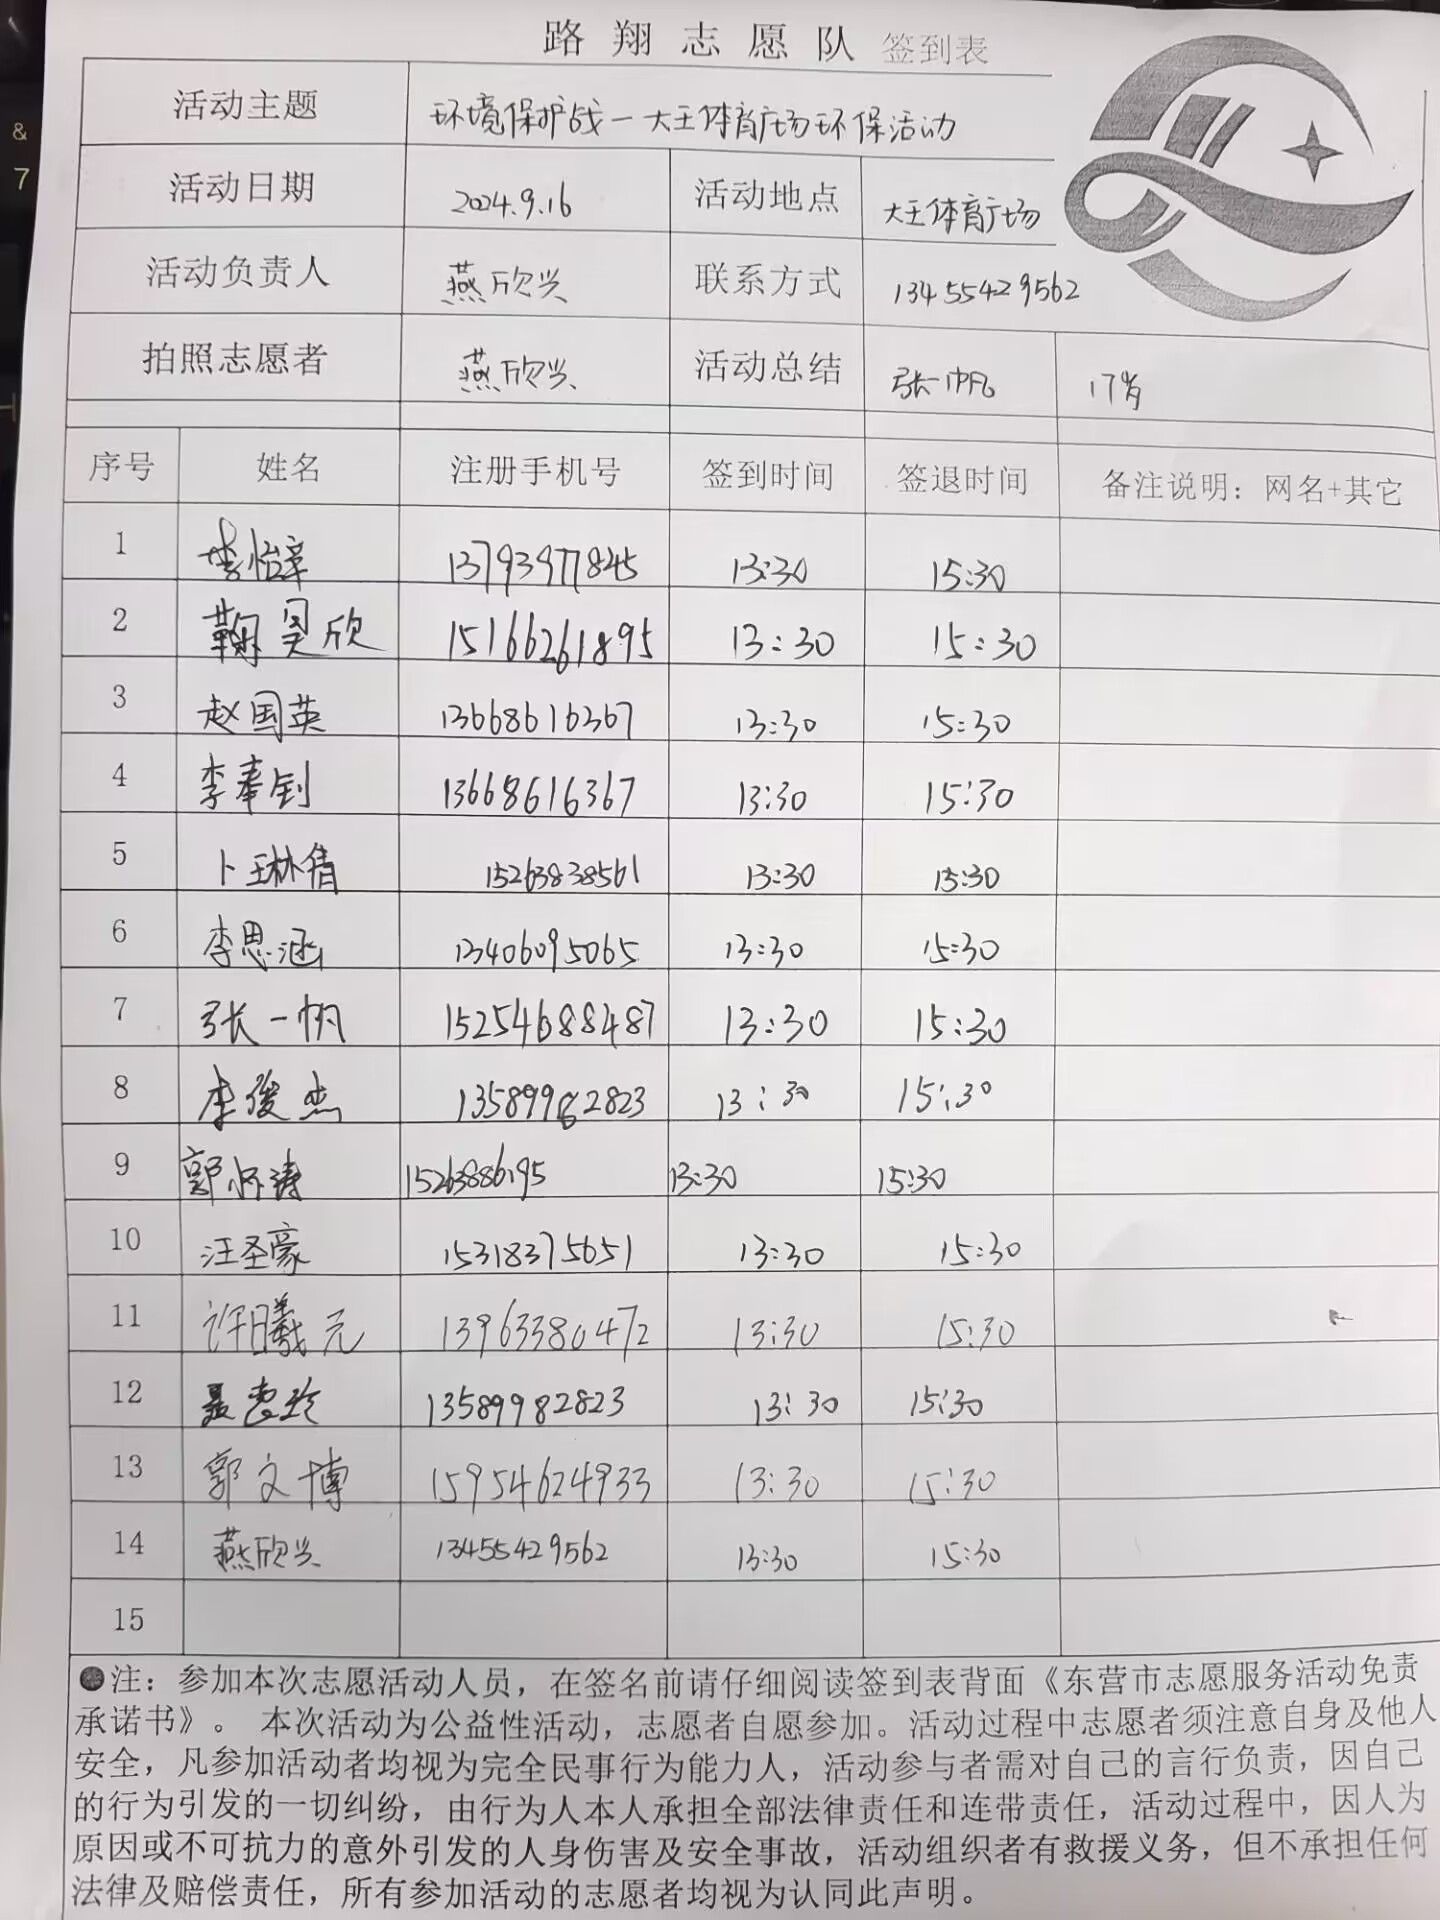 路翔志愿队 签到表
活动主题 环境保护战一大王体育广场环保活动
活动日期 2024.9.16 活动地点 大王体育广场
活动负责人 燕欣兴 联系方式 13455429562
拍照志愿者 燕欣兴 活动总结 张一帆 17岁
序号 姓名 注册手机号 签到时间 签退时间 备注说明：网名+其它
1 李怡宰 13793977845 13:30 15:30
2 鞠昊欣 15166261895 13:30 15:30
3 赵国英 13668616367 13:30 15:30
4 李奉钊 13668616367 13:30 15:30
5 卜琳倩 15263838561 13:30 15:30
6 李思涵 13406095065 13:30 15:30
7 张一帆 15254688487 13:30 15:30
8 李俊杰 13589982823 13:30 15:30
9 郭怀涛 15263886195 13:30 15:30
10 汪圣豪 15318375651 13:30 15:30
11 许曦元 13963380472 13:30 15:30
12 聂惠玲 13589982823 13:30 15:30
13 郭文博 15954624933 13:30 15:30
14 燕欣兴 13455429562 13:30 15:30
15
●注：参加本次志愿活动人员，在签名前请仔细阅读签到表背面《东营市志愿服务活动免责
承诺书》。 本次活动为公益性活动，志愿者自愿参加。活动过程中志愿者须注意自身及他人
安全，凡参加活动者均视为完全民事行为能力人，活动参与者需对自己的言行负责，因自己
的行为引发的一切纠纷，由行为人本人承担全部法律责任和连带责任，活动过程中，因人为
原因或不可抗力的意外引发的人身伤害及安全事故，活动组织者有救援义务，但不承担任何
法律及赔偿责任，所有参加活动的志愿者均视为认同此声明。
&
7